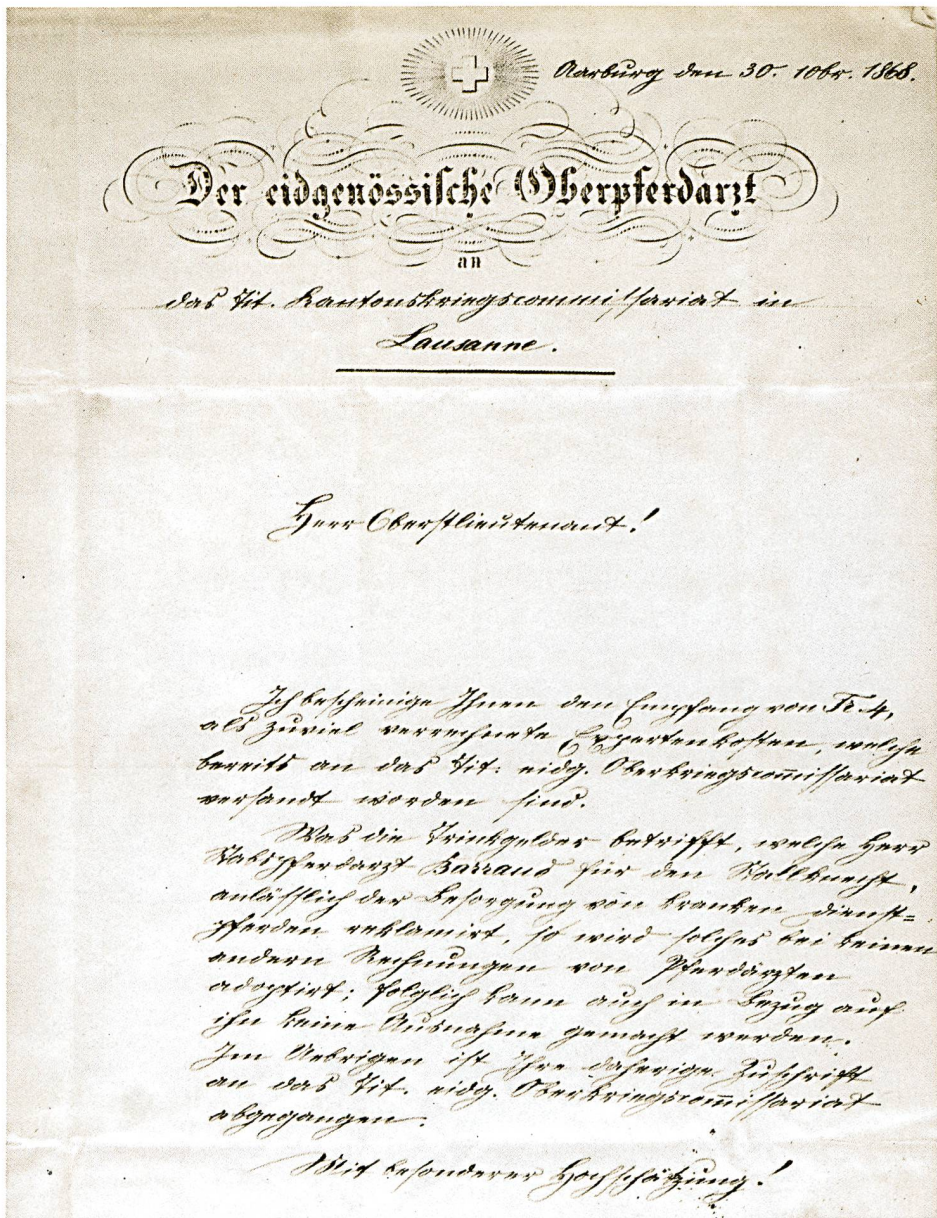 Aarburg den 30. 10br. 1868.
Der eidgenössische Oberpferdarzt
an
das Tit. Kantonskriegscommissariat in
Lausanne.
Herr Oberstlieutenant!
Ich bescheinige Ihnen den Empfang von Fr. 4,
als zuviel verrechnete Expertenkosten, welche
bereits an das Tit: eidg. Oberkriegscom̄issariat
versandt worden sind.
Was die Trinkgelder betrifft, welche Herr
Stabspferdarzt Barraud für den Stallknecht,
anlässlich der Besorgung von kranken Dienst=
pferden reklamirt, so wird solches bei keinen
andern Rechnungen von Pferdärzten
adoptirt; folglich kann auch in Bezug auf
ihn keine Ausnahme gemacht werden.
Im Uebrigen ist Ihre daherige Zuschrift
an das Tit. eidg. Oberkriegscom̄issariat
abgegangen.
Mit besonderer Hochschätzung!